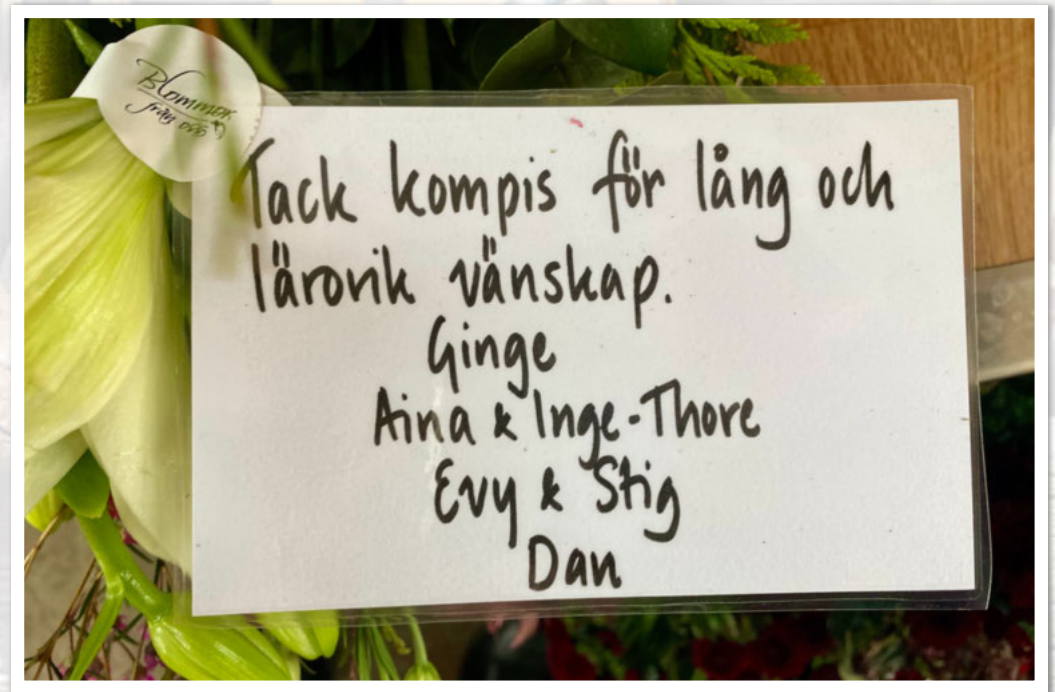 Blommor
från oss
Tack kompis för lång och
lärorik vänskap.
Ginge
Aina & Inge-Thore
Evy & Stig
Dan